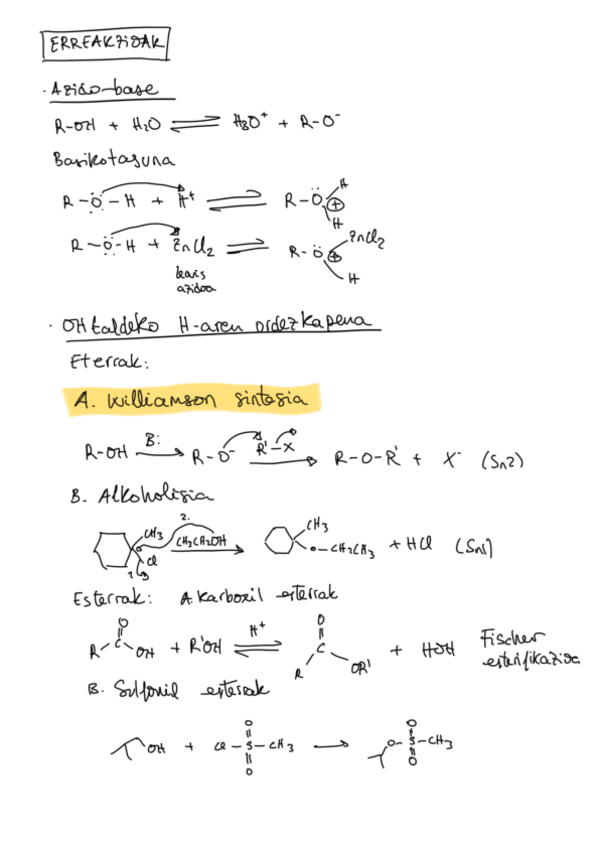 ERREAKZIOAK
· Azido-base
R-OH + H2O ⇌ H3O+ + R-O-
Basikotasuna
R-O-H + H+ ⇌ R-O ⊕ H H
R-O-H + ZnCl2 ⇌ R-O ⊕ ZnCl2 H
lewis
azidoa
· OH taldeko H-aren ordezkapena
Eterrak:
A. Williamson sintesia
R-OH B: → R-O- R'-X → R-O-R' + X- (Sn2)
B. Alkoholisia
CH3 Cl 1. 2. CH3CH2OH → CH3 O-CH2CH3 + HCl (Sn1)
Esterrak: A. Karboxil esterrak
R-C O OH + R'OH H+ ⇌ O C R OR' + HOH Fischer
esterifikazioa
B. Sulfonil esterrak
OH + Cl-S-CH3 O O → O-S-CH3 O O